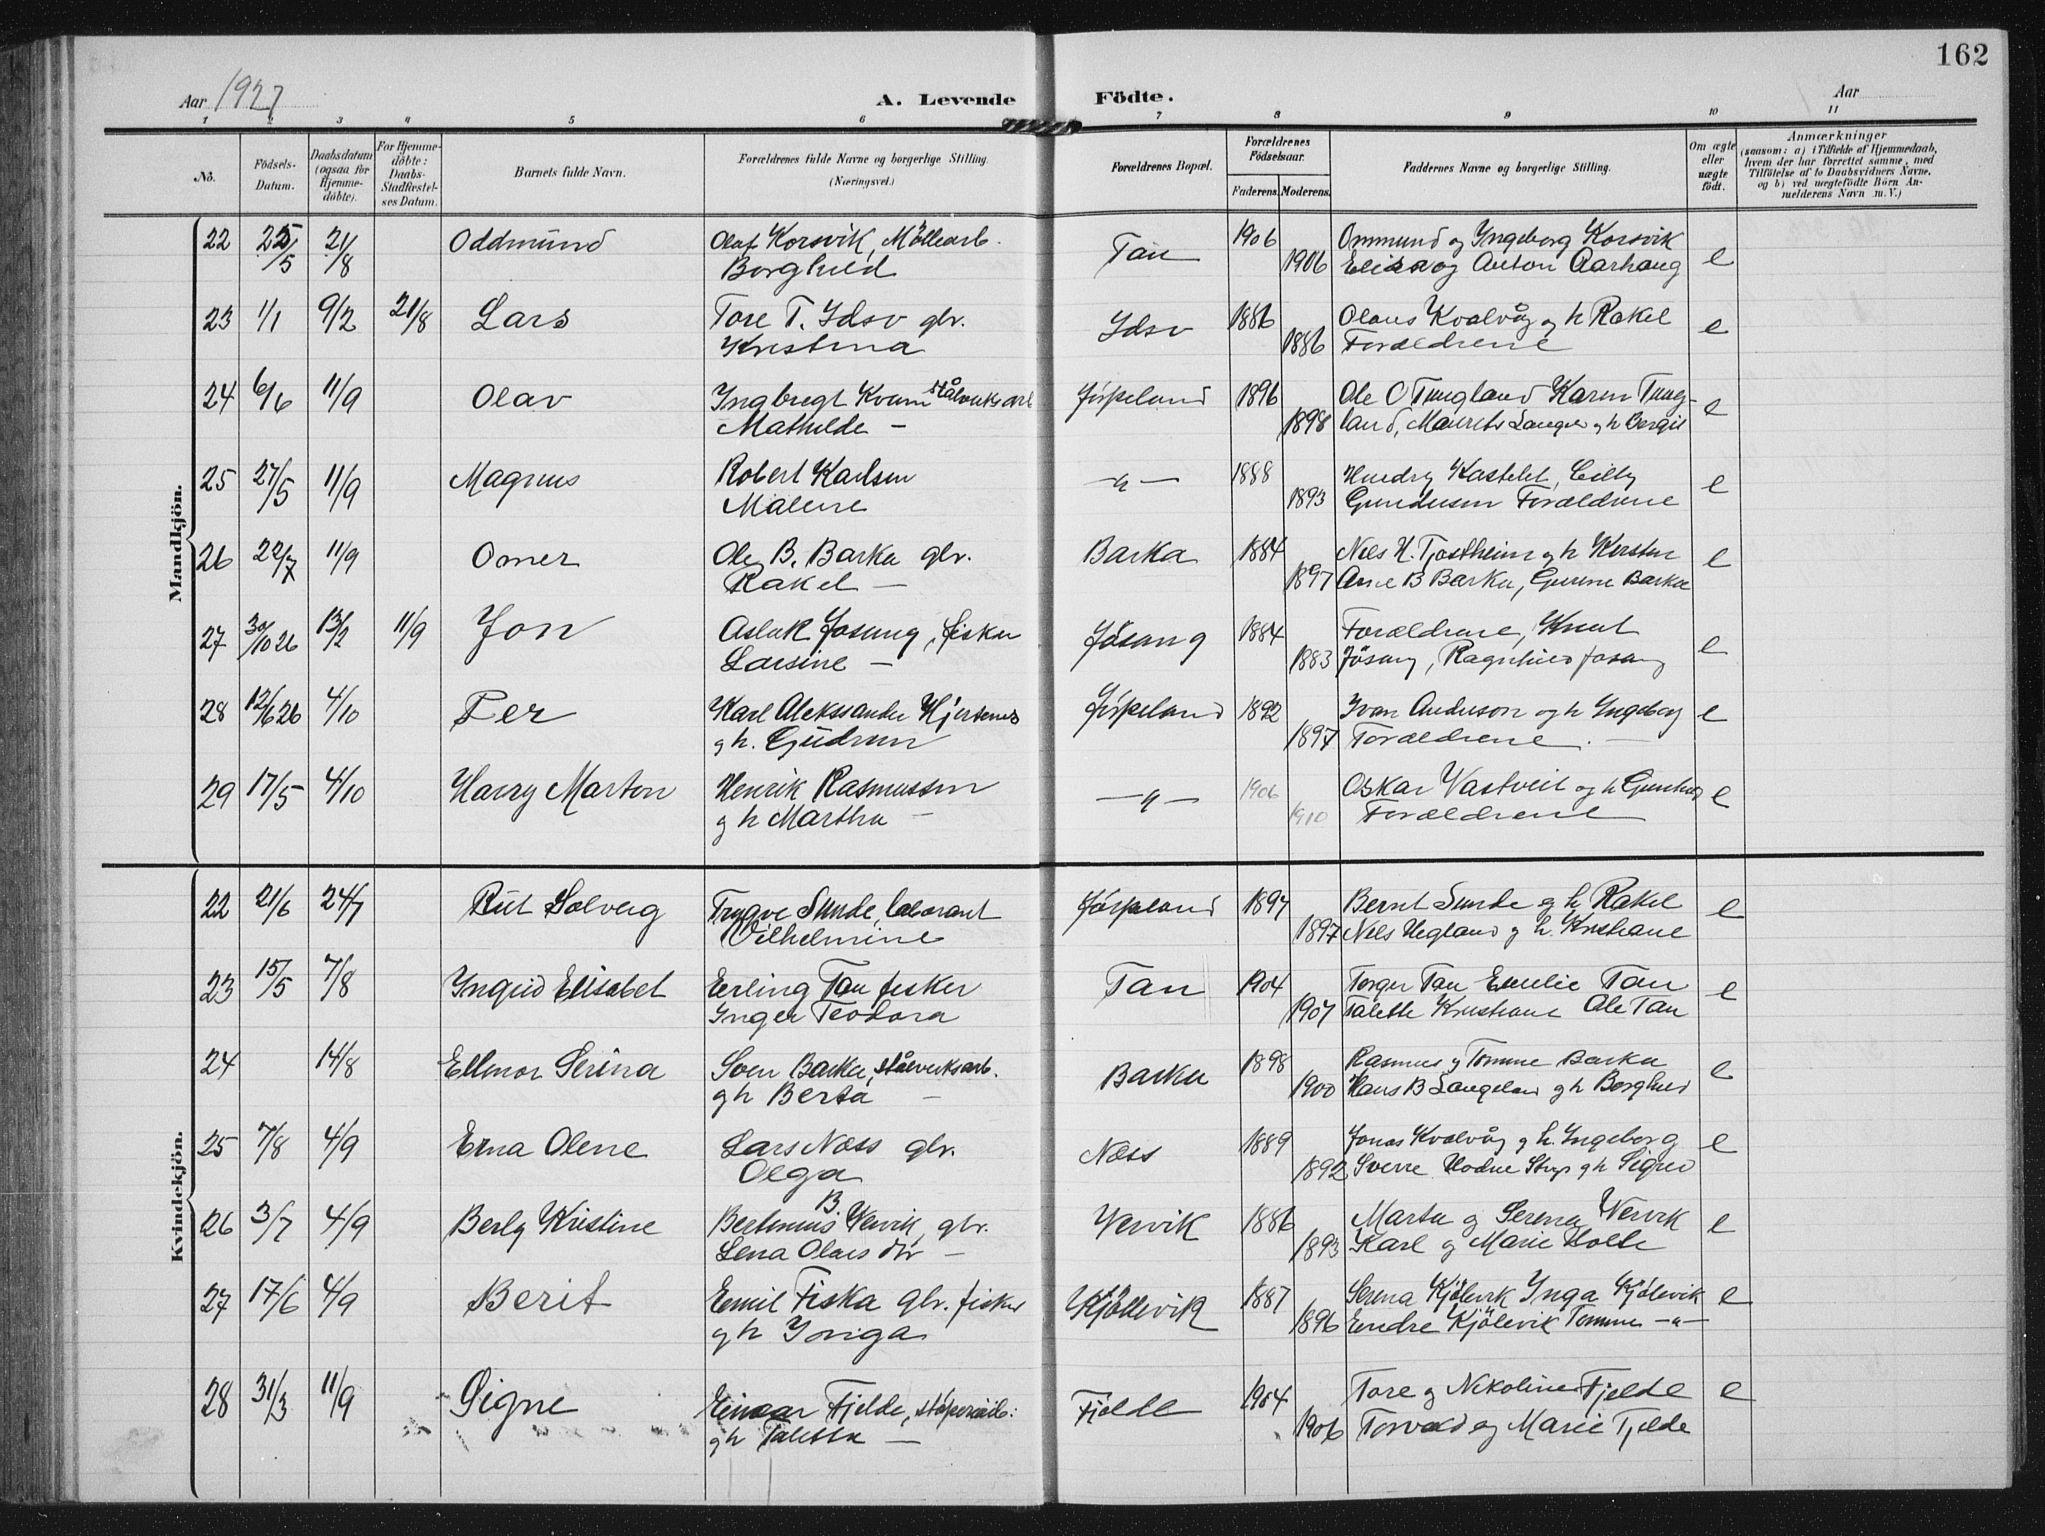 162
Aar 1927 A. Levende Födte. Aar
1 2 3 4 5 6 7 8 9 10 11
No. Födsels-Datum. Daabsdatum (ogsaa for Hjemme-döbte). For Hjemme-döbte: Daabs-Stadfæstel-ses Datum. Barnets fulde Navn. Forældrenes fulde Navne og borgerlige Stilling. (Næringsvei.) Forældrenes Bopæl. Forældrenes Födselsaar. Faderens. Moderens. Faddernes Navne og borgerlige Stilling. Om ægte eller uægte födt. Anmærkninger (saasom: a) i Tilfælde af Hjemmedaab, hvem der har forrettet samme, med Tilföielse af to Daabsvidners Navne, og b) ved uægtefödte Börn An-melderens Navn m. V.)
Mandkjön.
22 25/5 21/8 Oddmund Olaf Korsvik, Möllearb. Tau 1906 Ommund og Ingeborg Korsvik e
Borghild 1906 Elisa og Anton Aarhaug
23 1/1 9/2 21/8 Lars Tore T. Idsø gbr. Idsø 1886 Olaus Kvalvåg og h Rakel e
Kristina 1886 Forældrene
24 6/6 11/9 Olav Ingbregt Kvam stålverksarb Jørpeland 1896 Ole C Tungland Karen Tung- e
Mathilde — 1898 land, Maurits Langer og h Bergit
25 27/5 11/9 Magnus Robert Karlsen —"— 1888 Hendry Kastelet, Cilly e
Malene 1893 Gundersen Forældrene
26 22/7 11/9 Omer Ole B. Barka gbr. Barka 1884 Nils H. Tjostheim og h Kirsten e
Rakel — 1897 Arne B Barka, Gurine Barka
27 30/10 26 13/2 11/9 Jon Aslak Jøsang, fisker Jøsang 1884 Forældrene, Knut e
Larsine — 1883 Jøsang, Ragnhild Jøsang
28 12/6 26 4/10 Per Karl Aleksander Hjertenes Jørpeland 1892 Ivan Anderson og h Ingeborg e
g h. Gudrun 1897 Forældrene. —
29 17/5 4/10 Harry Marton Henrik Rasmussen —"— 1906 Oskar Vastveit og h Gunhild e
g h Martha — 1910 Forældrene
Kvindekjön.
22 21/6 24/7 Rut Solveig Trygve Sunde, laborant Jørpeland 1897 Bernt Sunde og h Rakel e
Vilhelmine 1897 Nils Hegland g h. Kristiane
23 15/5 7/8 Ingrid Elisabet Erling Tau fisker Tau 1904 Torger Tau Emilie Tau e
Inger Teodora 1907 Talette Kristiane Ole Tau
24 14/8 Ellenor Serina Sven Barka, stålverksarb. Barka 1898 Rasmus g Tomine Barka e
g h Berta — 1900 Hans B Langeland g h Borghild
25 7/8 4/9 Erna Olene Lars Næss gbr. Næss 1889 Jonas Kvalvåg g h. Ingeborg e
Olga 1892 Sverre Hodne Strys g h Sigrid
26 3/7 4/9 Berly Kristine Bertinius B. Vervik, gbr. Vervik 1886 Marta g Serena Vervik e
Lena Olaus dtr — 1893 Karl g Marie Holte
27 17/6 4/9 Berit Emil Fiska gbr. fisker Kjöllevik 1887 Serena Kjölevik Inga Kjölevik e
g h Ynga 1896 Endre Kjölevik Tomine —"—
28 31/3 11/9 Signe Einar Fjelde, støperiarb: Fjelde 1904 Tore g Nikoline Fjelde e
g h Taletta — 1906 Torvald og Marie Fjelde